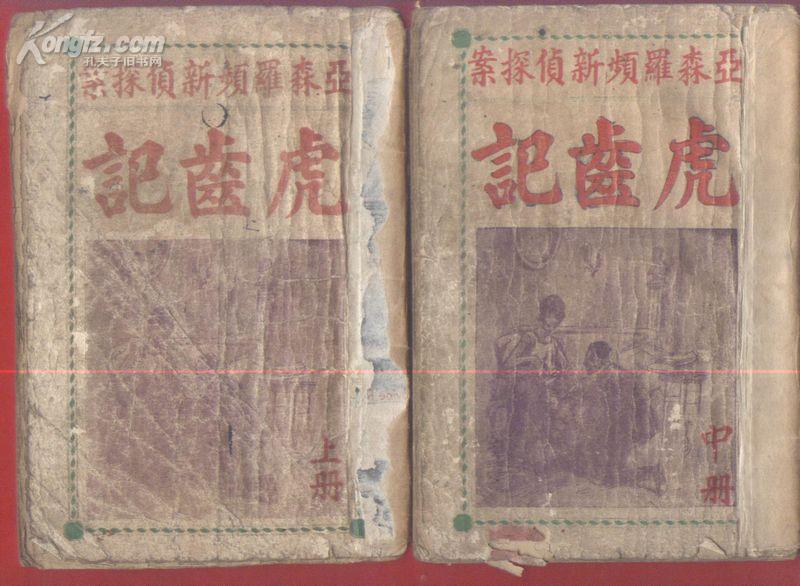 Kongfz.com
孔夫子旧书网
亞森羅頻新偵探案
虎齒記
上册
亞森羅頻新偵探案
虎齒記
中册